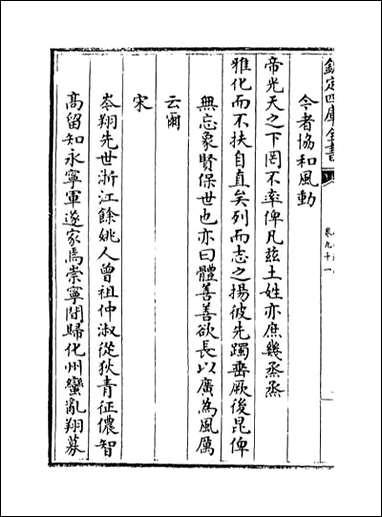 欽定四庫全書
卷九十一
今者協和風動
帝光天之下罔不率俾凡兹土姓亦庶幾烝烝
雅化而不扶自直矣列而志之揚彼先躅垂厥後昆俾
無忘象賢保世也亦曰體善善欲長以廣為風厲
云爾
宋
岑翔先世浙江餘姚人曾祖仲淑從狄青征儂智
髙留知永寧軍遂家焉崇寧間歸化州蠻亂翔募